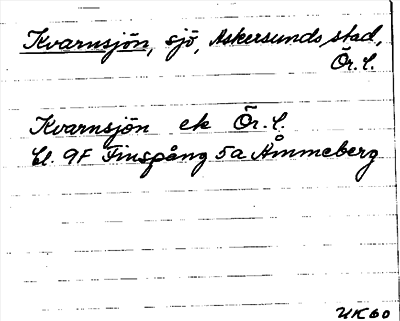 Kvarnsjön, sjö, Askersunds stad,
Ör.l.
Kvarnsjön ek Ör.l.
bl. 9F Finspång 5a Åmmeberg
UK60